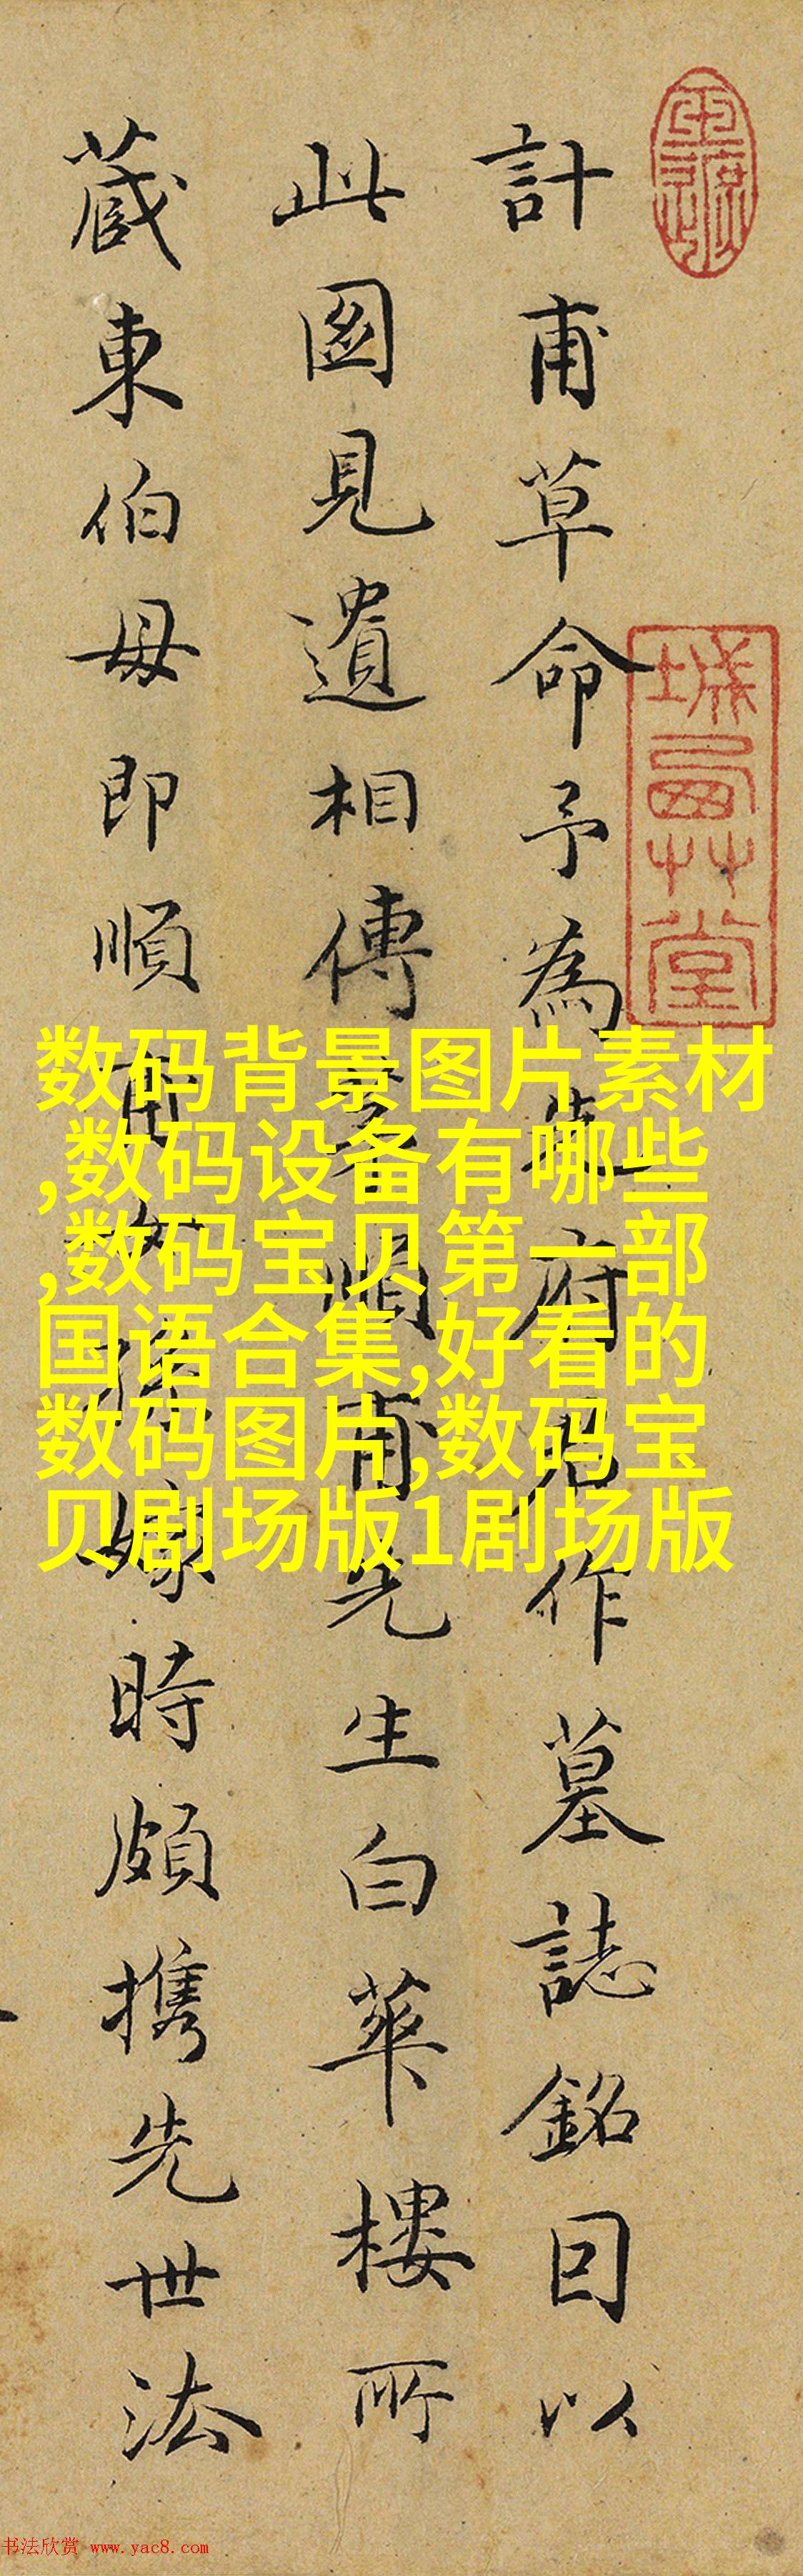 計甫草命予為先府君作墓誌銘囙以
此圖見遺相傳順甫先生白華樓所
蔵東伯母即順甫女孫嫁時頗携先世法
城曲艸堂
数码背景图片素材
,数码设备有哪些
,数码宝贝第一部
国语合集,好看的
数码图片,数码宝
贝剧场版1剧场版
书法欣赏 www.yac8.com